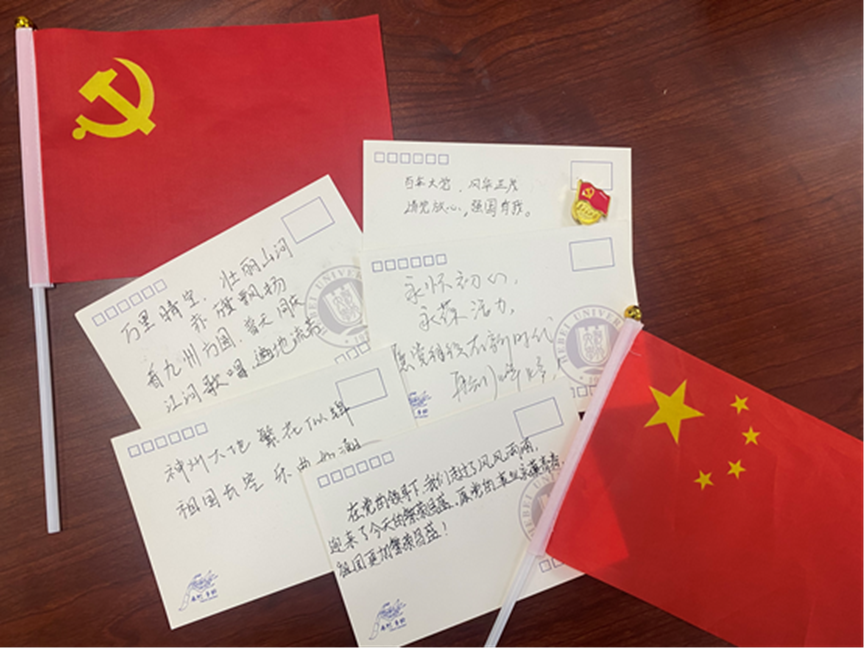 百年大党，风华正茂
请党放心，强国有我。
万里晴空，壮丽山河
赤旗飘扬
看九州方圆，普天同庆
江河歌唱遍地流芳
永怀初心，
永葆活力，
愿党继续在新时代
再创
神州大地 繁花似锦
祖国长空 乐曲如潮
在党的领导下，我们走过了风风雨雨，
迎来了今天的繁荣昌盛。愿党的事业
祖国更加繁荣昌盛！
HEBEI UNIVER
HEBEI UNIVER